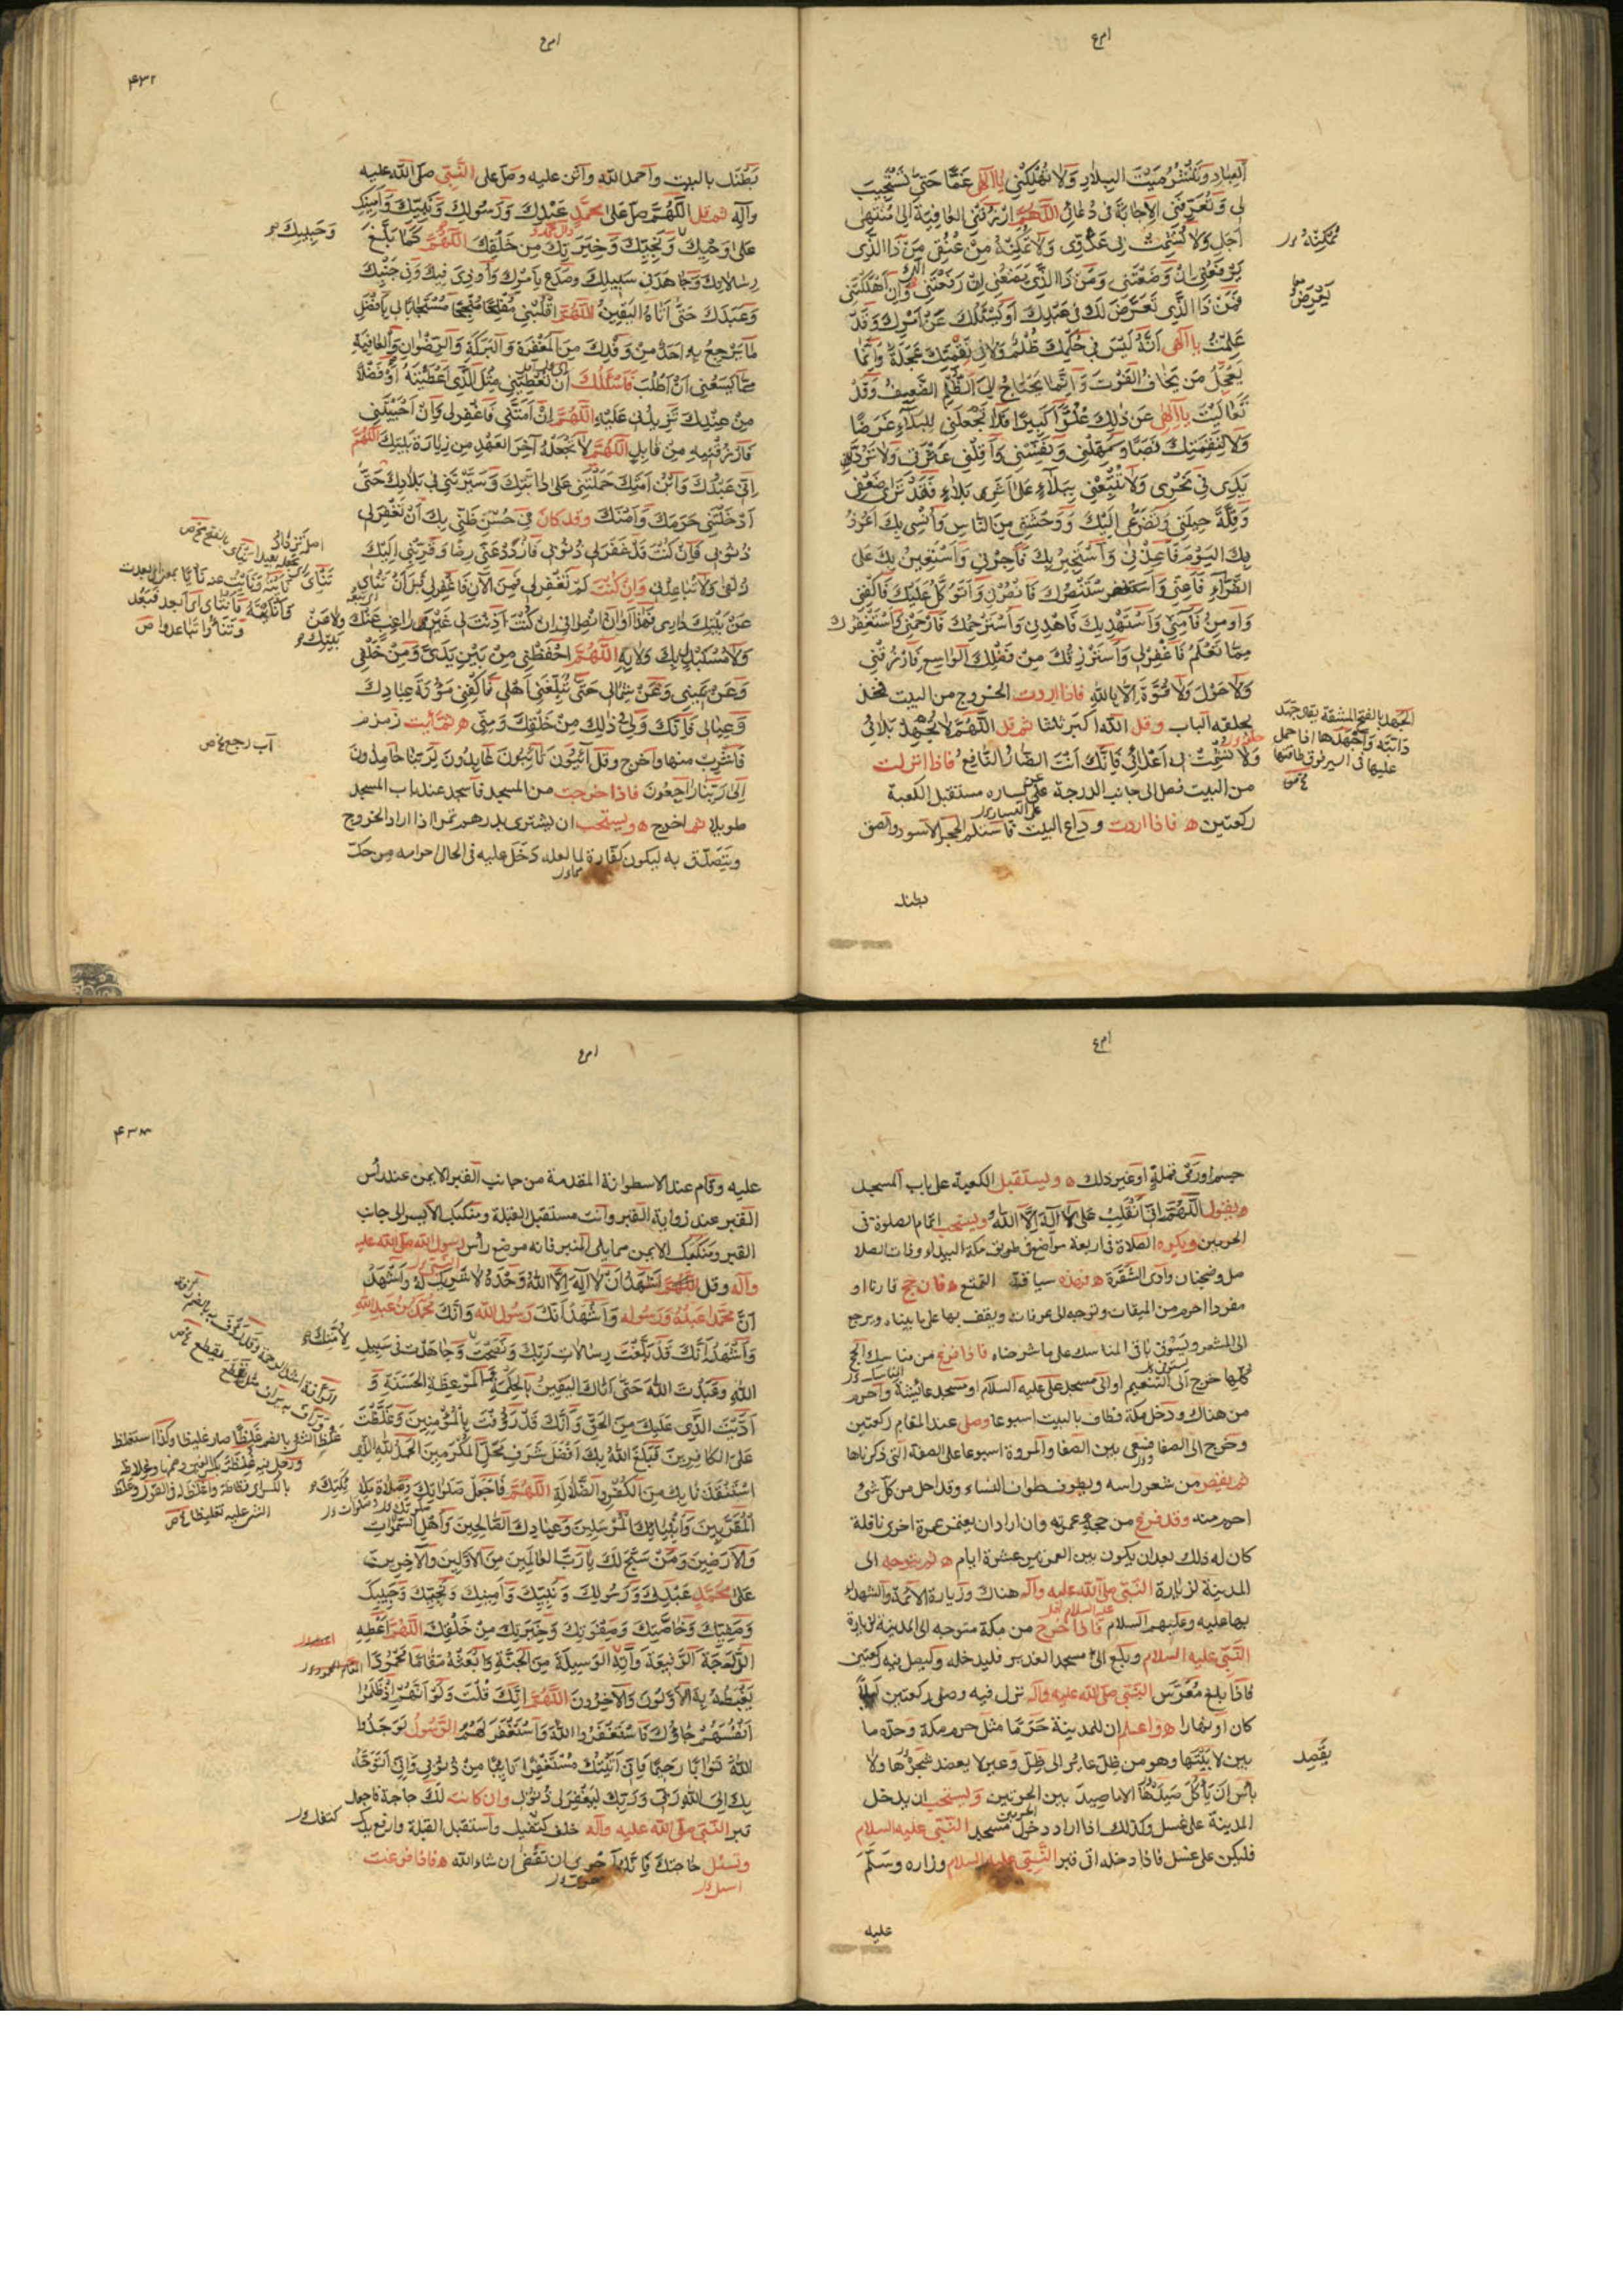 العباد وتنشر ميت البلاد ولا تهلكني يا الهي غما حتى تستجيب
لي وتعرفني الاجابة في دعائي اللهم ارزقني العافية الى منتهى
اجلي ولا تشمت بي عدوي ولا تمكنه من عنقي من ذا الذي
يرفعني ان وضعتني ومن ذا الذي يضعني ان رفعتني وان اهلكتني
فمن ذا الذي تعرض لك في عبدك او يسئلك عن امرك وقد
علمت يا الهي انه ليس في حكمك ظلم ولا في نقمتك عجلة وانما
يعجل من يخاف الفوت وانما يحتاج الى الظلم الضعيف وقد
تعاليت يا الهي عن ذلك علوا كبيرا فلا تجعلني للبلاء غرضا
ولا لنقمتك نصبا ومهلني ونفسني واقلني عثرتي ولا ترد
يدي في نحري ولا تتبعني ببلاء على اثر بلاء فقد ترى ضعفي
وقلة حيلتي وتضرعي اليك ووحشتي من الناس وانسي بك اعوذ
بك اليوم فاعذني واستجير بك فاجرني واستعين بك على
الضراء فاعني واستنصرك فانصرني واتوكل عليك فاكفني
واومن بك فامني واستهديك فاهدني واسترحمك فارحمني واستغفرك
مما تعلم فاغفر لي واسترزقك من فضلك الواسع فارزقني
ولا حول ولا قوة الا بالله فاذا اردت الخروج من البيت فخذ
بحلقه الباب وقل الله اكبر ثلثا ثم قل اللهم لا تجهد بلائي
ولا تشمت بي اعدائي فانك انت الضار النافع فاذا انزلت
من البيت فصل الى جانب الدرجة عن يساره مستقبل الكعبة
ركعتين ه فاذا اردت وداع البيت فاستلم الحجر الاسود والصق
بطنك
يعرض
الجهد بالفتح المشقة يقال جهد
دابته واجهدها اذا حمل
عليها في السير فوق طاقتها
۴۳۲
بطنك بالبيت واحمد الله واثن عليه وصل على النبي صلى الله عليه
وآله ثم قل اللهم صل على محمد عبدك ورسولك ونبيك وامينك
وحبيبك
على وحيك ونجيبك وخيرتك من خلقك اللهم كما بلغ
رسالاتك وجاهد في سبيلك وصدع بامرك واوذي فيك وفي جنبك
وعبدك حتى اتاه اليقين اللهم اقلبني مفلحا منجحا مستجابا لي بافضل
ما يرجع به احد من وفدك من المغفرة والبركة والرضوان والعافية
مما يسعني ان اطلب فاسئلك ان تعطيني مثل الذي اعطيته او فضلا
من عندك تزيدني عليه اللهم ان امتني فاغفر لي وان احييتني
فارزقنيه من قابل اللهم لا تجعله آخر العهد من زيارة بيتك اللهم
اني عبدك وابن امتك حملتني على دابتك وسيرتني في بلادك حتى
ادخلتني حرمك وامنك وقد كان في حسن ظني بك ان تغفر لي
ذنوبي فان كنت قد غفرت لي ذنوبي فازدد عني رضا وقربني اليك
زلفى ولا تباعدني وان كنت لم تغفر لي فمن الآن فاغفر لي قبل ان تناى
عن بيتك داري فهذا اوان انصرافي ان كنت اذنت لي غير راغب عنك
ولا عن بيتك
ولا مستبدل بك ولا به اللهم احفظني من بين يدي ومن خلفي
وعن يميني وعن شمالي حتى تبلغني اهلي فاكفني مؤنة عبادك
وعيالي فانك ولي ذلك من خلقك ومني ه ثم ائت زمزم
فاشرب منها واخرج وقل آئبون تائبون عابدون لربنا حامدون
آب رجع
الى ربنا راجعون فاذا خرجت من المسجد فاسجد عند باب المسجد
طويلا ثم اخرج ه ويستحب ان يشترى بدرهم تمرا اذا اراد الخروج
ويتصدق به ليكون كفارة لما لعله دخل عليه في الحال احرامه من حك
جسم او رمي قملة او غير ذلك ه ويستقبل الكعبة على باب المسجد
ويقول اللهم اني انقلب على لا اله الا الله ويستحب اتمام الصلوة في
الحرمين ويكره الصلاة في اربعة مواضع في طريق مكة البيداء وذات الصلا
صل وضجنان وادي الشقرة ه فهذه سياقة التمتع ه فان حج قارنا او
مفردا احرم من الميقات وتوجه الى عرفات ويقف بها على ما بيناه ويرجع
الى المشعر ويستوفي باقي المناسك على ما شرحناه فاذا فرغ من مناسك الحج
كلها خرج الى التنعيم او الى مسجد علي عليه السلام او مسجد عائشة واحرم
من هناك ودخل مكة فطاف بالبيت اسبوعا وصلى عند المقام ركعتين
وخرج الى الصفا فسعى بين الصفا والمروة اسبوعا على الصفة التي ذكرناها
ثم يقصر من شعر راسه ويطوف طواف النساء وقد احل من كل شئ
احرم منه وقد فرغ من حجه وعمرته وان اراد ان يعتمر عمرة اخرى نافلة
كان له ذلك بعد ان يكون بين العمرتين عشرة ايام ه ثم يتوجه الى
المدينة لزيارة النبي صلى الله عليه وآله هناك وزيارة الائمة والشهداء
بها عليه وعليهم السلام فاذا خرج من مكة متوجها الى المدينة لزيارة
النبي عليه السلام وبلغ الى مسجد الغدير فليدخله وليصل فيه ركعتين
فاذا بلغ معرس النبي صلى الله عليه وآله نزل فيه وصلى ركعتين ليلا
كان او نهارا ه واعلم ان للمدينة حرما مثل حرم مكة وحده ما
بين لابتيها وهو من ظل عائر الى ظل وعير لا يعضد شجرها ولا
باس ان يأكل صيدها الا ما صيد بين الحرمين ويستحب ان يدخل
المدينة على غسل وكذلك اذا اراد دخول مسجد النبي عليه السلام
فليكن على غسل فاذا دخله اتى قبر النبي عليه السلام وزاره وسلم
عليه
عليه وقام عند الاسطوانة المقدمة من جانب القبر الايمن عند رأس
القبر عند زواية القبر وانت مستقبل القبلة ومنكبك الايسر الى جانب
القبر ومنكبك الايمن مما يلي المنبر فانه موضع رأس رسول الله صلى الله عليه
وآله وقل اشهد ان لا اله الا الله وحده لا شريك له واشهد
ان محمدا عبده ورسوله واشهد انك رسول الله وانك محمد بن عبد الله
واشهد انك قد بلغت رسالات ربك ونصحت وجاهدت في سبيل
لامتك
الله وعبدت الله حتى اتاك اليقين بالحكمة والموعظة الحسنة و
اديت الذي عليك من الحق وانك قد رؤفت بالمؤمنين وغلظت
على الكافرين فبلغ الله بك افضل شرف محل المكرمين الحمد لله الذي
استنقذنا بك من الكفر والضلالة اللهم فاجعل صلواتك وصلاة ملائكتك
المقربين وانبيائك المرسلين وعبادك الصالحين واهل السموات
والارضين ومن سبح لك يا رب العالمين من الاولين والآخرين
على محمد عبدك ورسولك ونبيك وامينك ونجيك وحبيبك
وصفيك وخاصتك وصفوتك وخيرتك من خلقك اللهم اعطه
الدرجة الرفيعة وآته الوسيلة من الجنة وابعثه مقاما محمودا
يغبطه به الاولون والآخرون اللهم انك قلت ولو انهم اذ ظلموا
انفسهم جاؤك فاستغفروا الله واستغفر لهم الرسول لوجدوا
الله توابا رحيما واني اتيتك مستغفرا تائبا من ذنوبي واني اتوجه
بك الى الله ربي وربك ليغفر لي ذنوبي وان كانت لك حاجة فاجعل
قبر النبي صلى الله عليه وآله خلف كتفيك واستقبل القبلة وارفع يديك
وتسئل حاجتك فانه احرى ان تقضى ان شاء الله ه فاذا فرغت